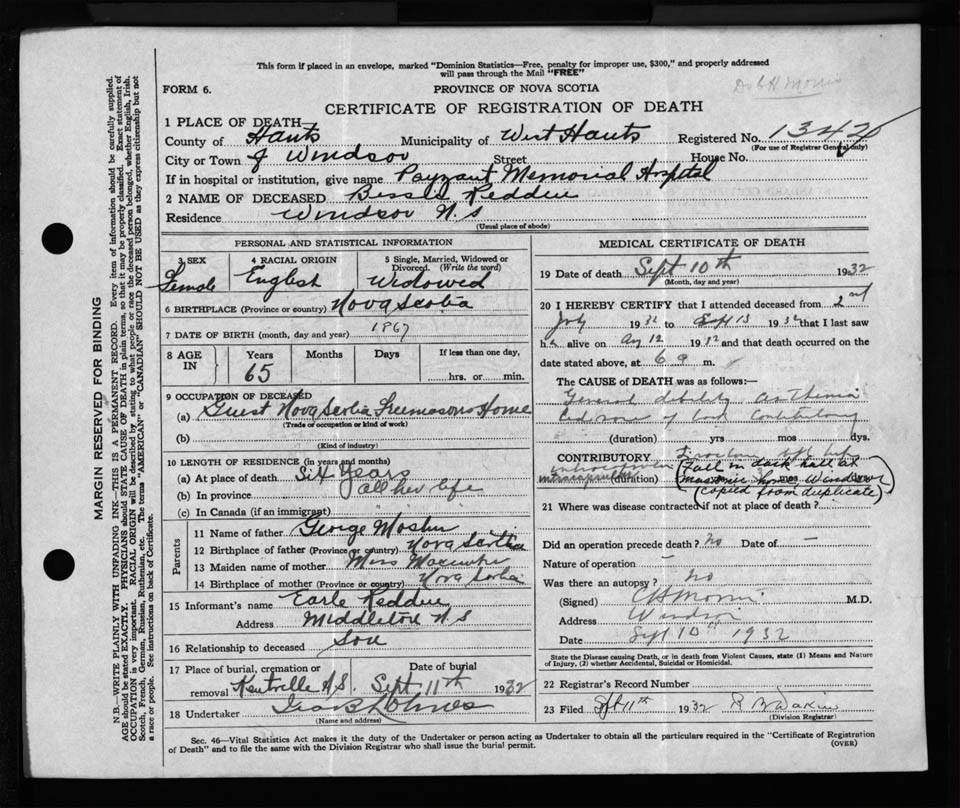 This form if placed in an envelope, marked "Dominion Statistics—Free, penalty for improper use, $300," and properly addressed
will pass through the Mail "FREE"
FORM 6.
PROVINCE OF NOVA SCOTIA
CERTIFICATE OF REGISTRATION OF DEATH
1 PLACE OF DEATH
County of Hants Municipality of West Hants Registered No. 1342
(For use of Registrar General only)
City or Town of Windsor Street House No.
If in hospital or institution, give name Payzant Memorial Hospital
2 NAME OF DECEASED Bessie Redden
Residence Windsor N.S
(Usual place of abode)
PERSONAL AND STATISTICAL INFORMATION
3 SEX Female
4 RACIAL ORIGIN English
5 Single, Married, Widowed or
Divorced. (Write the word)
Widowed
6 BIRTHPLACE (Province or country) Nova Scotia
7 DATE OF BIRTH (month, day and year) 1867
8 AGE IN
Years 65
Months
Days
If less than one day,
hrs. or min.
9 OCCUPATION OF DECEASED
(a) Guest Nova Scotia Freemasons Home
(Trade or occupation or kind of work)
(b)
(Kind of industry)
10 LENGTH OF RESIDENCE (in years and months)
(a) At place of death Six Years
(b) In province All her life
(c) In Canada (if an immigrant)
Parents
11 Name of father George Mosher
12 Birthplace of father (Province or country) Nova Scotia
13 Maiden name of mother Miss
14 Birthplace of mother (Province or country) Nova Scotia
15 Informant's name Earle Redden
Address Middleton N.S
16 Relationship to deceased Son
17 Place of burial, cremation or
removal Kentville N.S.
Date of burial
Sept 11th 1932
18 Undertaker
(Name and address)
MEDICAL CERTIFICATE OF DEATH
19 Date of death Sept 10th 1932
(Month, day and year)
20 I HEREBY CERTIFY that I attended deceased from 2nd
July 1932 to Sept 13 1932 that I last saw
h alive on Aug 12 1932 and that death occurred on the
date stated above, at 6 a m.
The CAUSE of DEATH was as follows:—
General debility asthenia
(duration) yrs mos dys.
CONTRIBUTORY Fracture left hip
(duration) mos
(Fall in dark hall at
masonic home Windsor
(copied from duplicate)
21 Where was disease contracted if not at place of death?
Did an operation precede death? no Date of —
Nature of operation —
Was there an autopsy? no
(Signed) C H Morris M.D.
Address Windsor
Date Sept 10th 1932
State the Disease causing Death, or in death from Violent Causes, state (1) Means and Nature
of Injury, (2) whether Accidental, Suicidal or Homicidal.
22 Registrar's Record Number
23 Filed Sept 11th 1932
(Division Registrar)
Sec. 46—Vital Statistics Act makes it the duty of the Undertaker or person acting as Undertaker to obtain all the particulars required in the "Certificate of Registration
of Death" and to file the same with the Division Registrar who shall issue the burial permit.
(OVER)
MARGIN RESERVED FOR BINDING
N.B.—WRITE PLAINLY WITH UNFADING INK—THIS IS A PERMANENT RECORD. Every item of information should be carefully supplied.
AGE should be stated EXACTLY. PHYSICIANS should STATE CAUSE OF DEATH in plain terms, so that it may be properly classified. Exact statement of
OCCUPATION is very important. RACIAL ORIGIN will be described by stating to what people or race the deceased person belonged, whether English, Irish,
Scotch, French, German, Russian, Ruthenian, etc. The terms "AMERICAN" or "CANADIAN" SHOULD NOT BE USED as they express citizenship but not
a race or people. See instructions on back of Certificate.